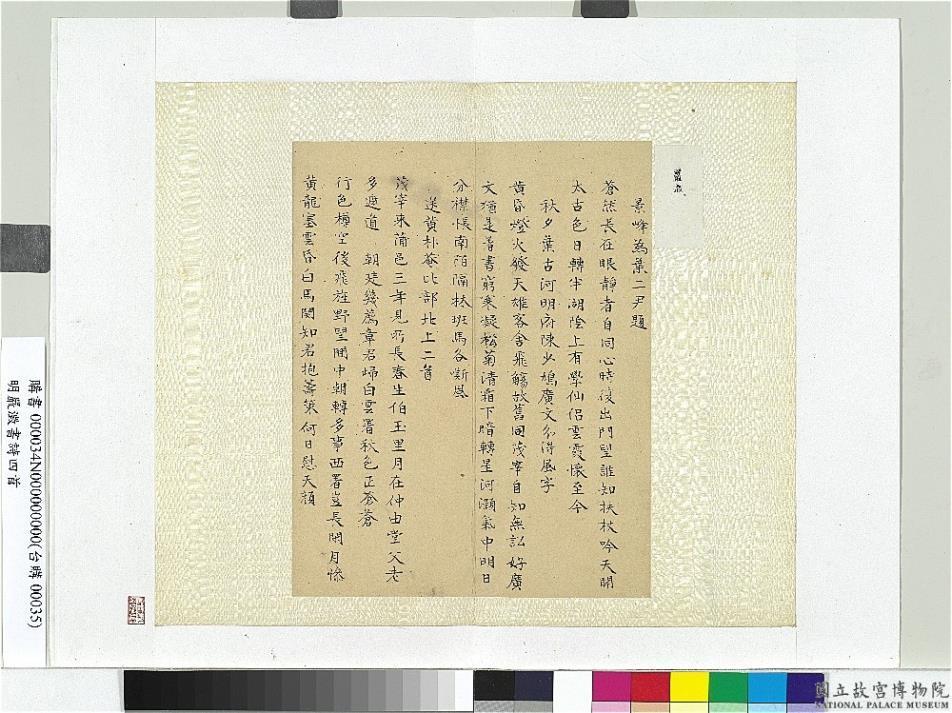 嚴澂
景峰為葉二尹題
蒼然長在眼靜者自同心時復出門望誰知扶杖吟天開
太古色日轉半湖陰上有學仙侶雲霞懷至今
秋夕葉古河明府陳少鳩廣文分得風字
黃昏燈火發天雄客舍飛觴故舊同茂宰自知無訟好廣
文種是著書窮寒凝松菊清霜下暗轉星河灝氣中明日
分襟悵南陌隔林班馬各嘶風
送黃朴菴比部北上二首
茂宰來蒲邑三年見所長春生伯玉里月在仲由堂父老
多遮道 朝廷幾薦章君歸白雲署秋色正蒼蒼
行色樽空後飛旌野望間中朝轉多事西署豈長閒月慘
黃龍塞雲昏白馬關知君抱籌策何日慰天顏
購書 000034N000000000(台購 00035)
明嚴澂書詩四首
國立故宮博物院
NATIONAL PALACE MUSEUM